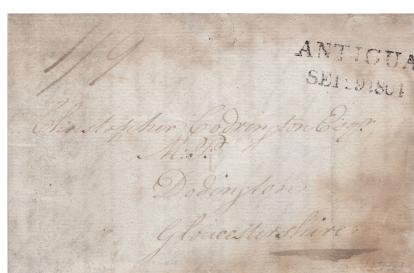 1/9
ANTIGUA
SEP 9 1804
Christopher Codrington Esqr.
M.P.
Dodington
Gloucestershire